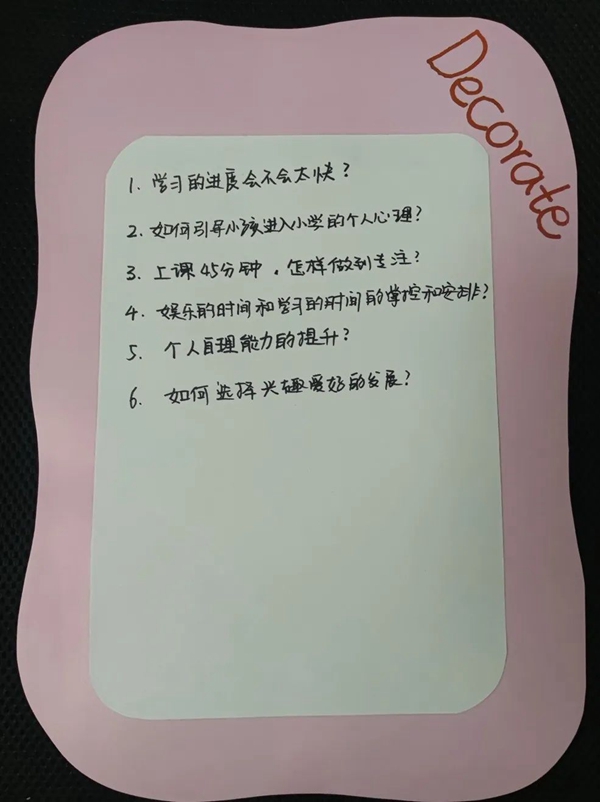 Decorate
1. 学习的进度会不会太快?
2. 如何引导小孩进入小学的个人心理?
3. 上课45分钟,怎样做到专注?
4. 娱乐的时间和学习的时间的掌控和安排?
5. 个人自理能力的提升?
6. 如何选择兴趣爱好的发展?